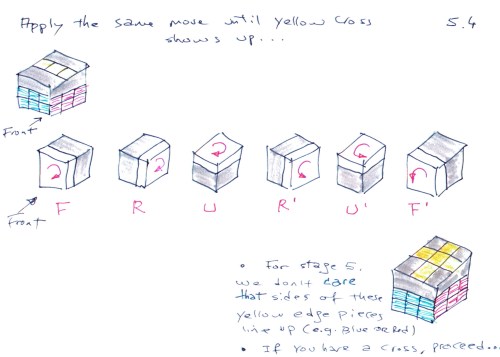 Apply the same move until yellow cross
shows up...
5.4
Front
F R U R' U' F'
Front
• For stage 5,
we don't care
that sides of these
yellow edge pieces
line up (e.g. Blue or Red)
• If you have a cross, proceed...